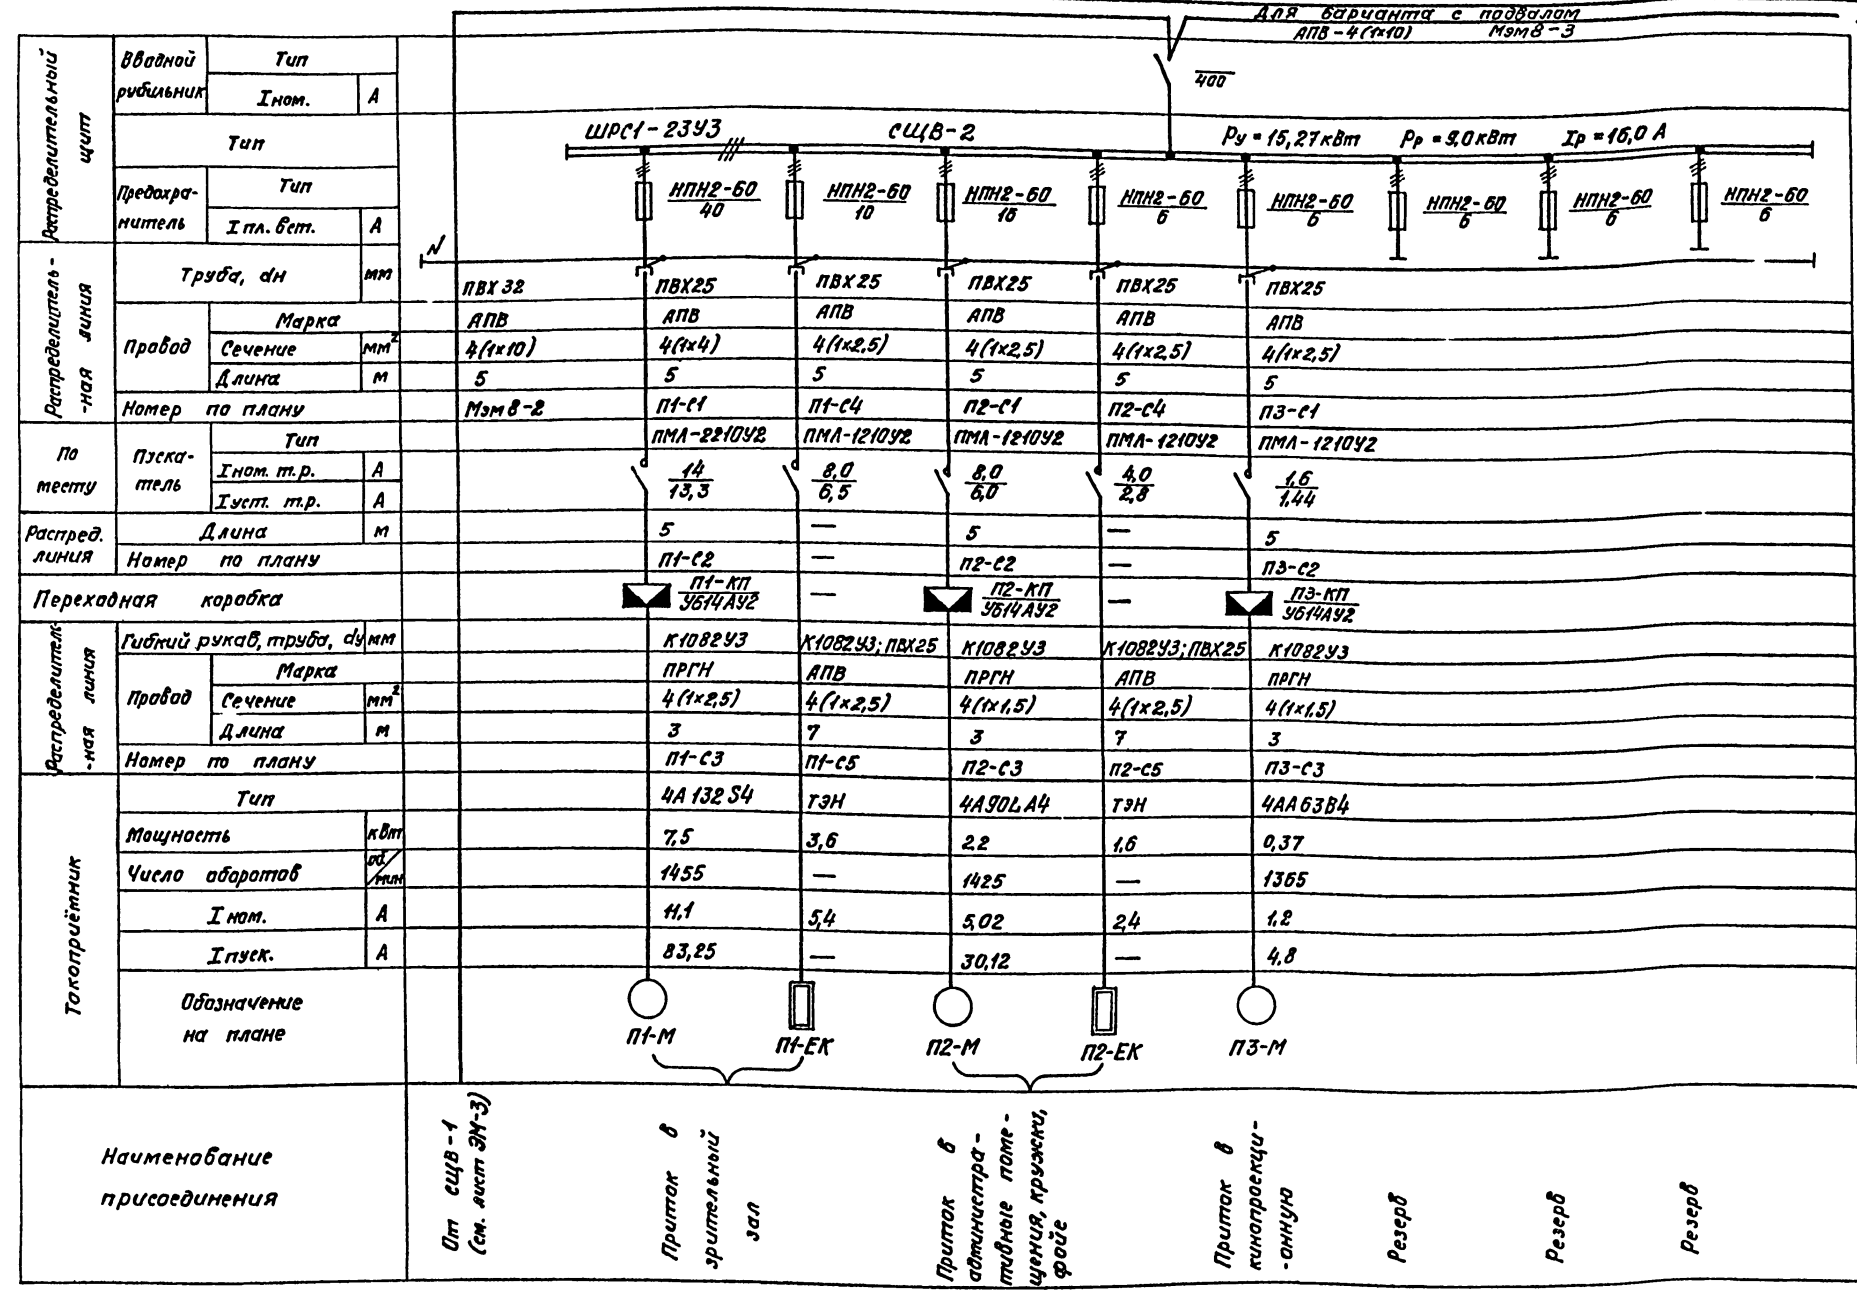 Для варианта с подвалом
АПВ-4(1х10) Мэм8-3
Распределительный щит
Вводной рубильник
Тип
Iном. А
400
Тип
ШРС1-23У3 СЩВ-2 Ру=15,27кВт Рр=9,0кВт Iр=16,0 А
Предохра-
нитель
Тип
Iпл. вст. А
НПН2-60 НПН2-60 НПН2-60 НПН2-60 НПН2-60 НПН2-60 НПН2-60 НПН2-60
40 10 16 6 6 6 6 6
N
Распределитель-
-ная линия
Труба, dн мм ПВХ32 ПВХ25 ПВХ25 ПВХ25 ПВХ25 ПВХ25
Провод
Марка АПВ АПВ АПВ АПВ АПВ АПВ
Сечение мм² 4(1х10) 4(1х4) 4(1х2,5) 4(1х2,5) 4(1х2,5) 4(1х2,5)
Длина м 5 5 5 5 5 5
Номер по плану Мэм8-2 П1-С1 П1-С4 П2-С1 П2-С4 П3-С1
По месту
Пуска-
тель
Тип ПМЛ-2210У2 ПМЛ-1210У2 ПМЛ-1210У2 ПМЛ-1210У2 ПМЛ-1210У2
Iном. т.р. А 14 8,0 8,0 4,0 1,6
Iуст. т.р. А 13,3 6,5 6,0 2,8 1,44
Распред.
линия
Длина м 5 — 5 — 5
Номер по плану П1-С2 — П2-С2 — П3-С2
Переходная коробка П1-КП — П2-КП — П3-КП
У614АУ2 У614АУ2 У614АУ2
Распределитель-
-ная линия
Гибкий рукав, труба, dу мм К1082У3 К1082У3; ПВХ25 К1082У3 К1082У3; ПВХ25 К1082У3
Провод
Марка ПРГН АПВ ПРГН АПВ ПРГН
Сечение мм² 4(1х2,5) 4(1х2,5) 4(1х1,5) 4(1х2,5) 4(1х1,5)
Длина м 3 7 3 7 3
Номер по плану П1-С3 П1-С5 П2-С3 П2-С5 П3-С3
Токоприёмник
Тип 4А132S4 ТЭН 4А90LА4 ТЭН 4АА63В4
Мощность кВт 7,5 3,6 2,2 1,6 0,37
Число оборотов об/мин 1455 — 1425 — 1365
I ном. А 11,1 5,4 5,02 2,4 1,2
Iпуск. А 83,25 — 30,12 — 4,8
Обозначение
на плане
П1-М П1-ЕК П2-М П2-ЕК П3-М
Наименование
присоединения
От СЩВ-1
(см. лист ЭМ-3)
Приток в
зрительный
зал
Приток в
администра-
тивные поме-
щения, кружки,
фойе
Приток в
кинопроекци-
-онную
Резерв
Резерв
Резерв